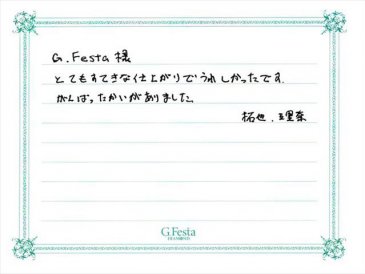 G.Festa 様
とてもすてきな仕上がりでうれしかったです。
がんばったかいがありました。
拓也.理奈
G.Festa
DIAMOND